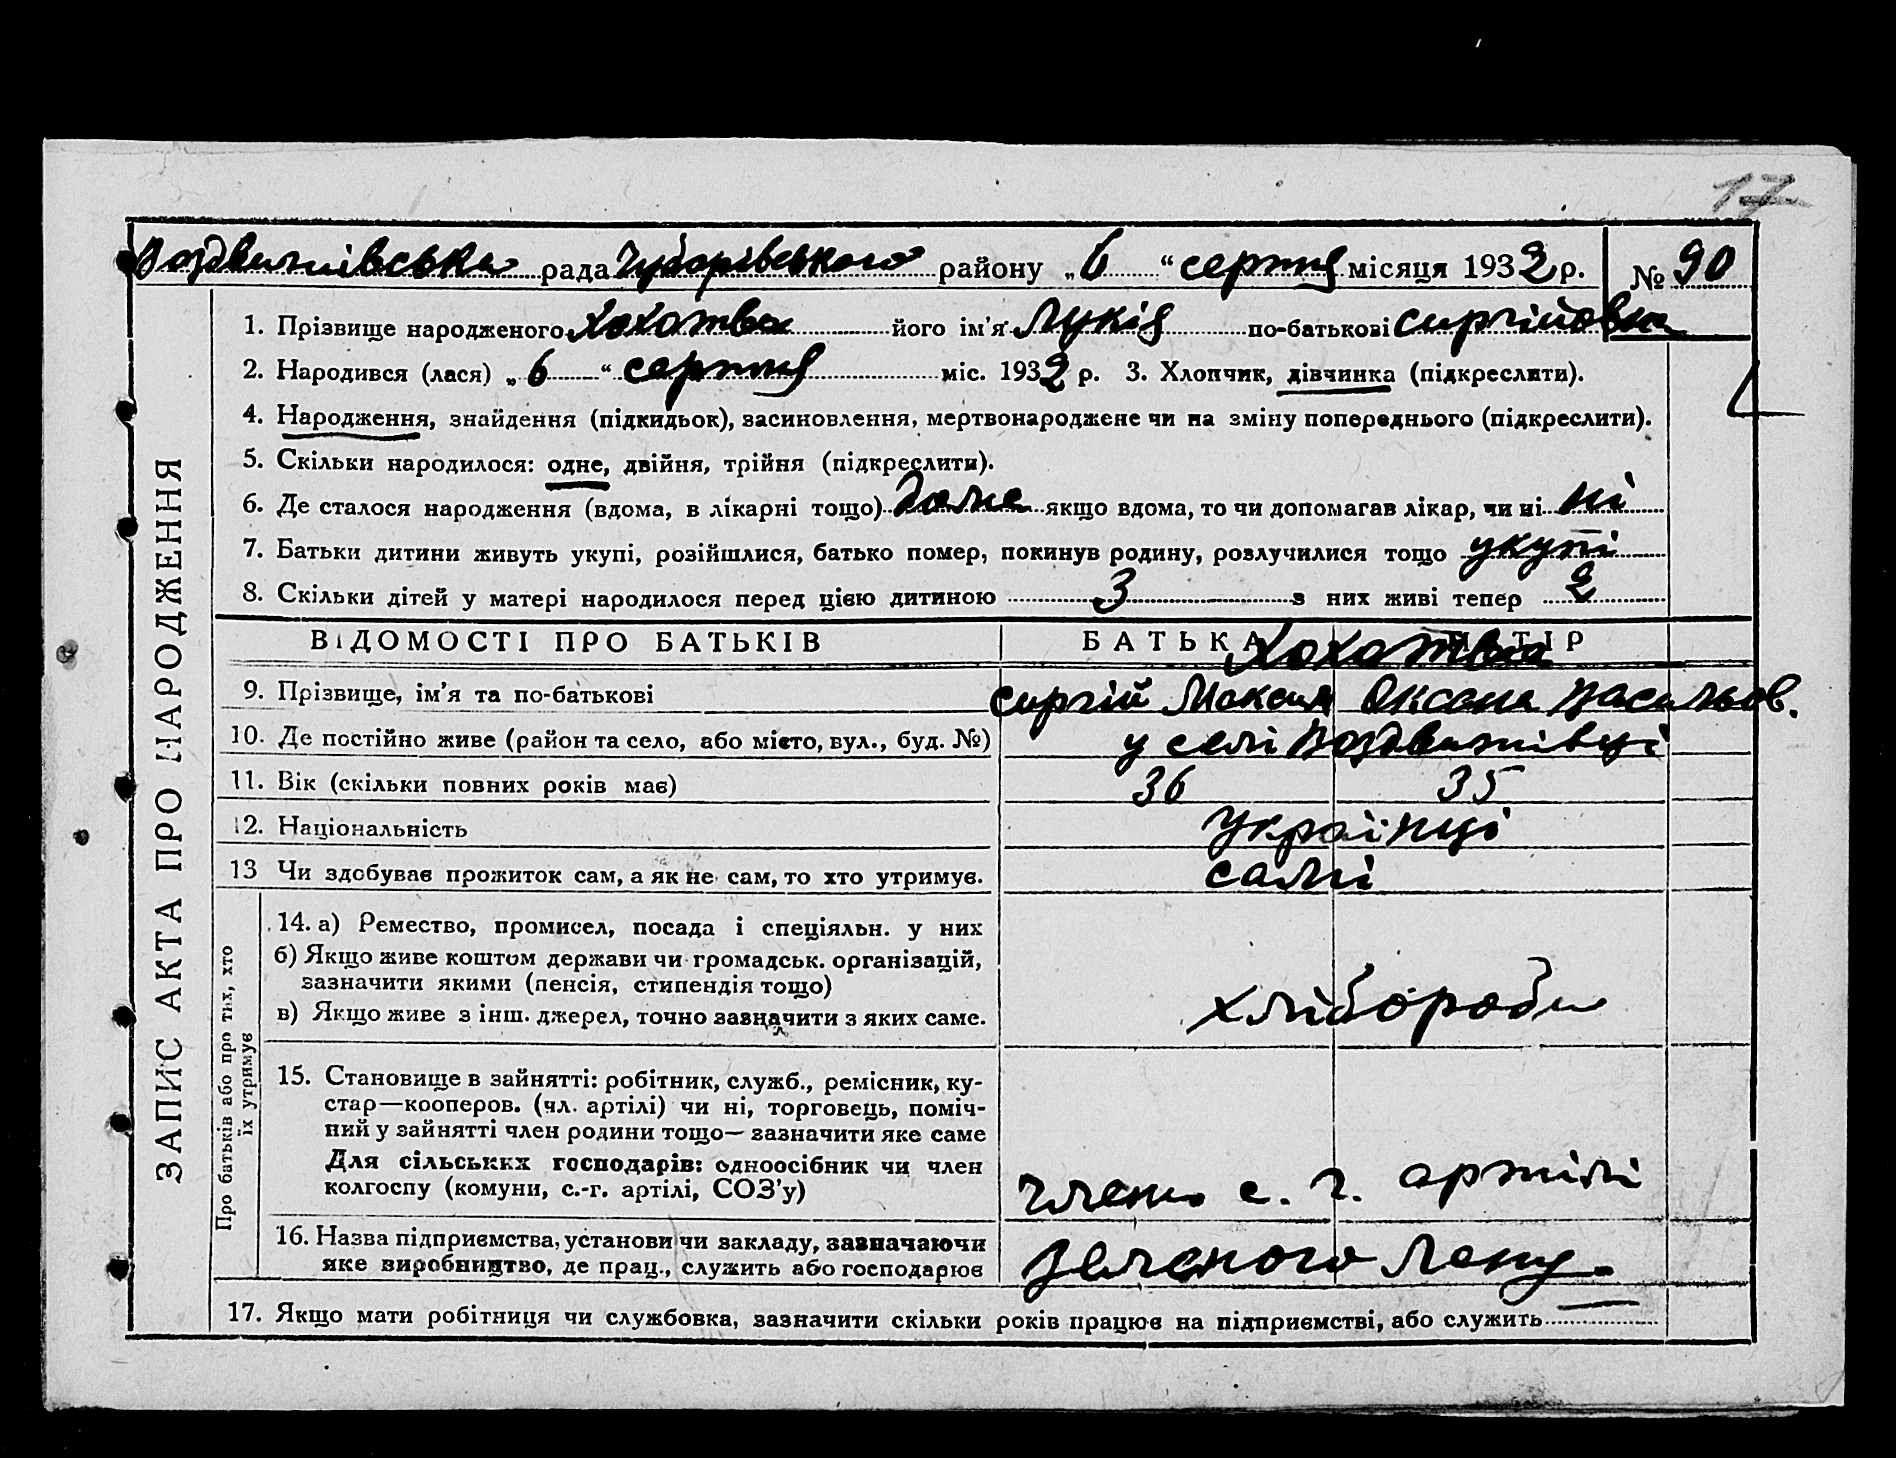 17
Воздвижівська рада Чубарівського району „6“ серпня місяця 1932 р. № 90
1. Прізвище народженого Хохотва його ім'я Лукія по-батькові Сиргійовна
2. Народився (лася) „6“ серпня міс. 1932 р. 3. Хлопчик, дівчинка (підкреслити).
4. Народження, знайдення (підкидьок), васиновлення, мертвонароджене чи на зміну попереднього (підкреслити).
5. Скільки народилося: одне, двійня, трійня (підкреслити).
6. Де сталося народження (вдома, в лікарні тощо) дома якщо вдома, то чи допомагав лікар, чи ні ні
7. Батьки дитини живуть укупі, розійшлися, батько помер, покинув родину, розлучилися тощо укупі
8. Скільки дітей у матері народилося перед цією дитиною 3 з них живі тепер 2
ЗАПИС АКТА ПРО НАРОДЖЕННЯ
ВІДОМОСТІ ПРО БАТЬКІВ БАТЬКА МАТІР
Хохотва
9. Прізвище, ім'я та по-батькові Сиргій Максим Оксана Васильов.
10. Де постійно живе (район та село, або місто, вул., буд. №) у селі Воздвижівці
11. Вік (скільки повних років має) 36 35
12. Національність Українці
13 Чи здобував прожиток сам, а як не сам, то хто утримує. самі
Про батьків або про тих, хто
їх утримує
14. а) Ремество, промисел, посада і спеціяльн. у них
б) Якщо живе коштом держави чи громадськ. організацій,
зазначити якими (пенсія, стипендія тощо)
в) Якщо живе з інш. джерел, точно зазначити з яких саме. хлібороби
15. Становище в зайнятті: робітник, служб., ремісник, ку-
стар—кооперов. (чл. артілі) чи ні, торговець, поміч-
ний у зайнятті член родини тощо— зазначити яке саме
Для сільських господарів: одноосібник чи член
колгоспу (комуни, с.-г. артілі, СОЗ'у) члени с. г. артілі
16. Назва підприємства, установи чи закладу, зазначаючи
яке виробництво, де прац., служить або господарює Зеленого Лану
17. Якщо мати робітниця чи службовка, зазначити скільки років працює на підприємстві, або служить —